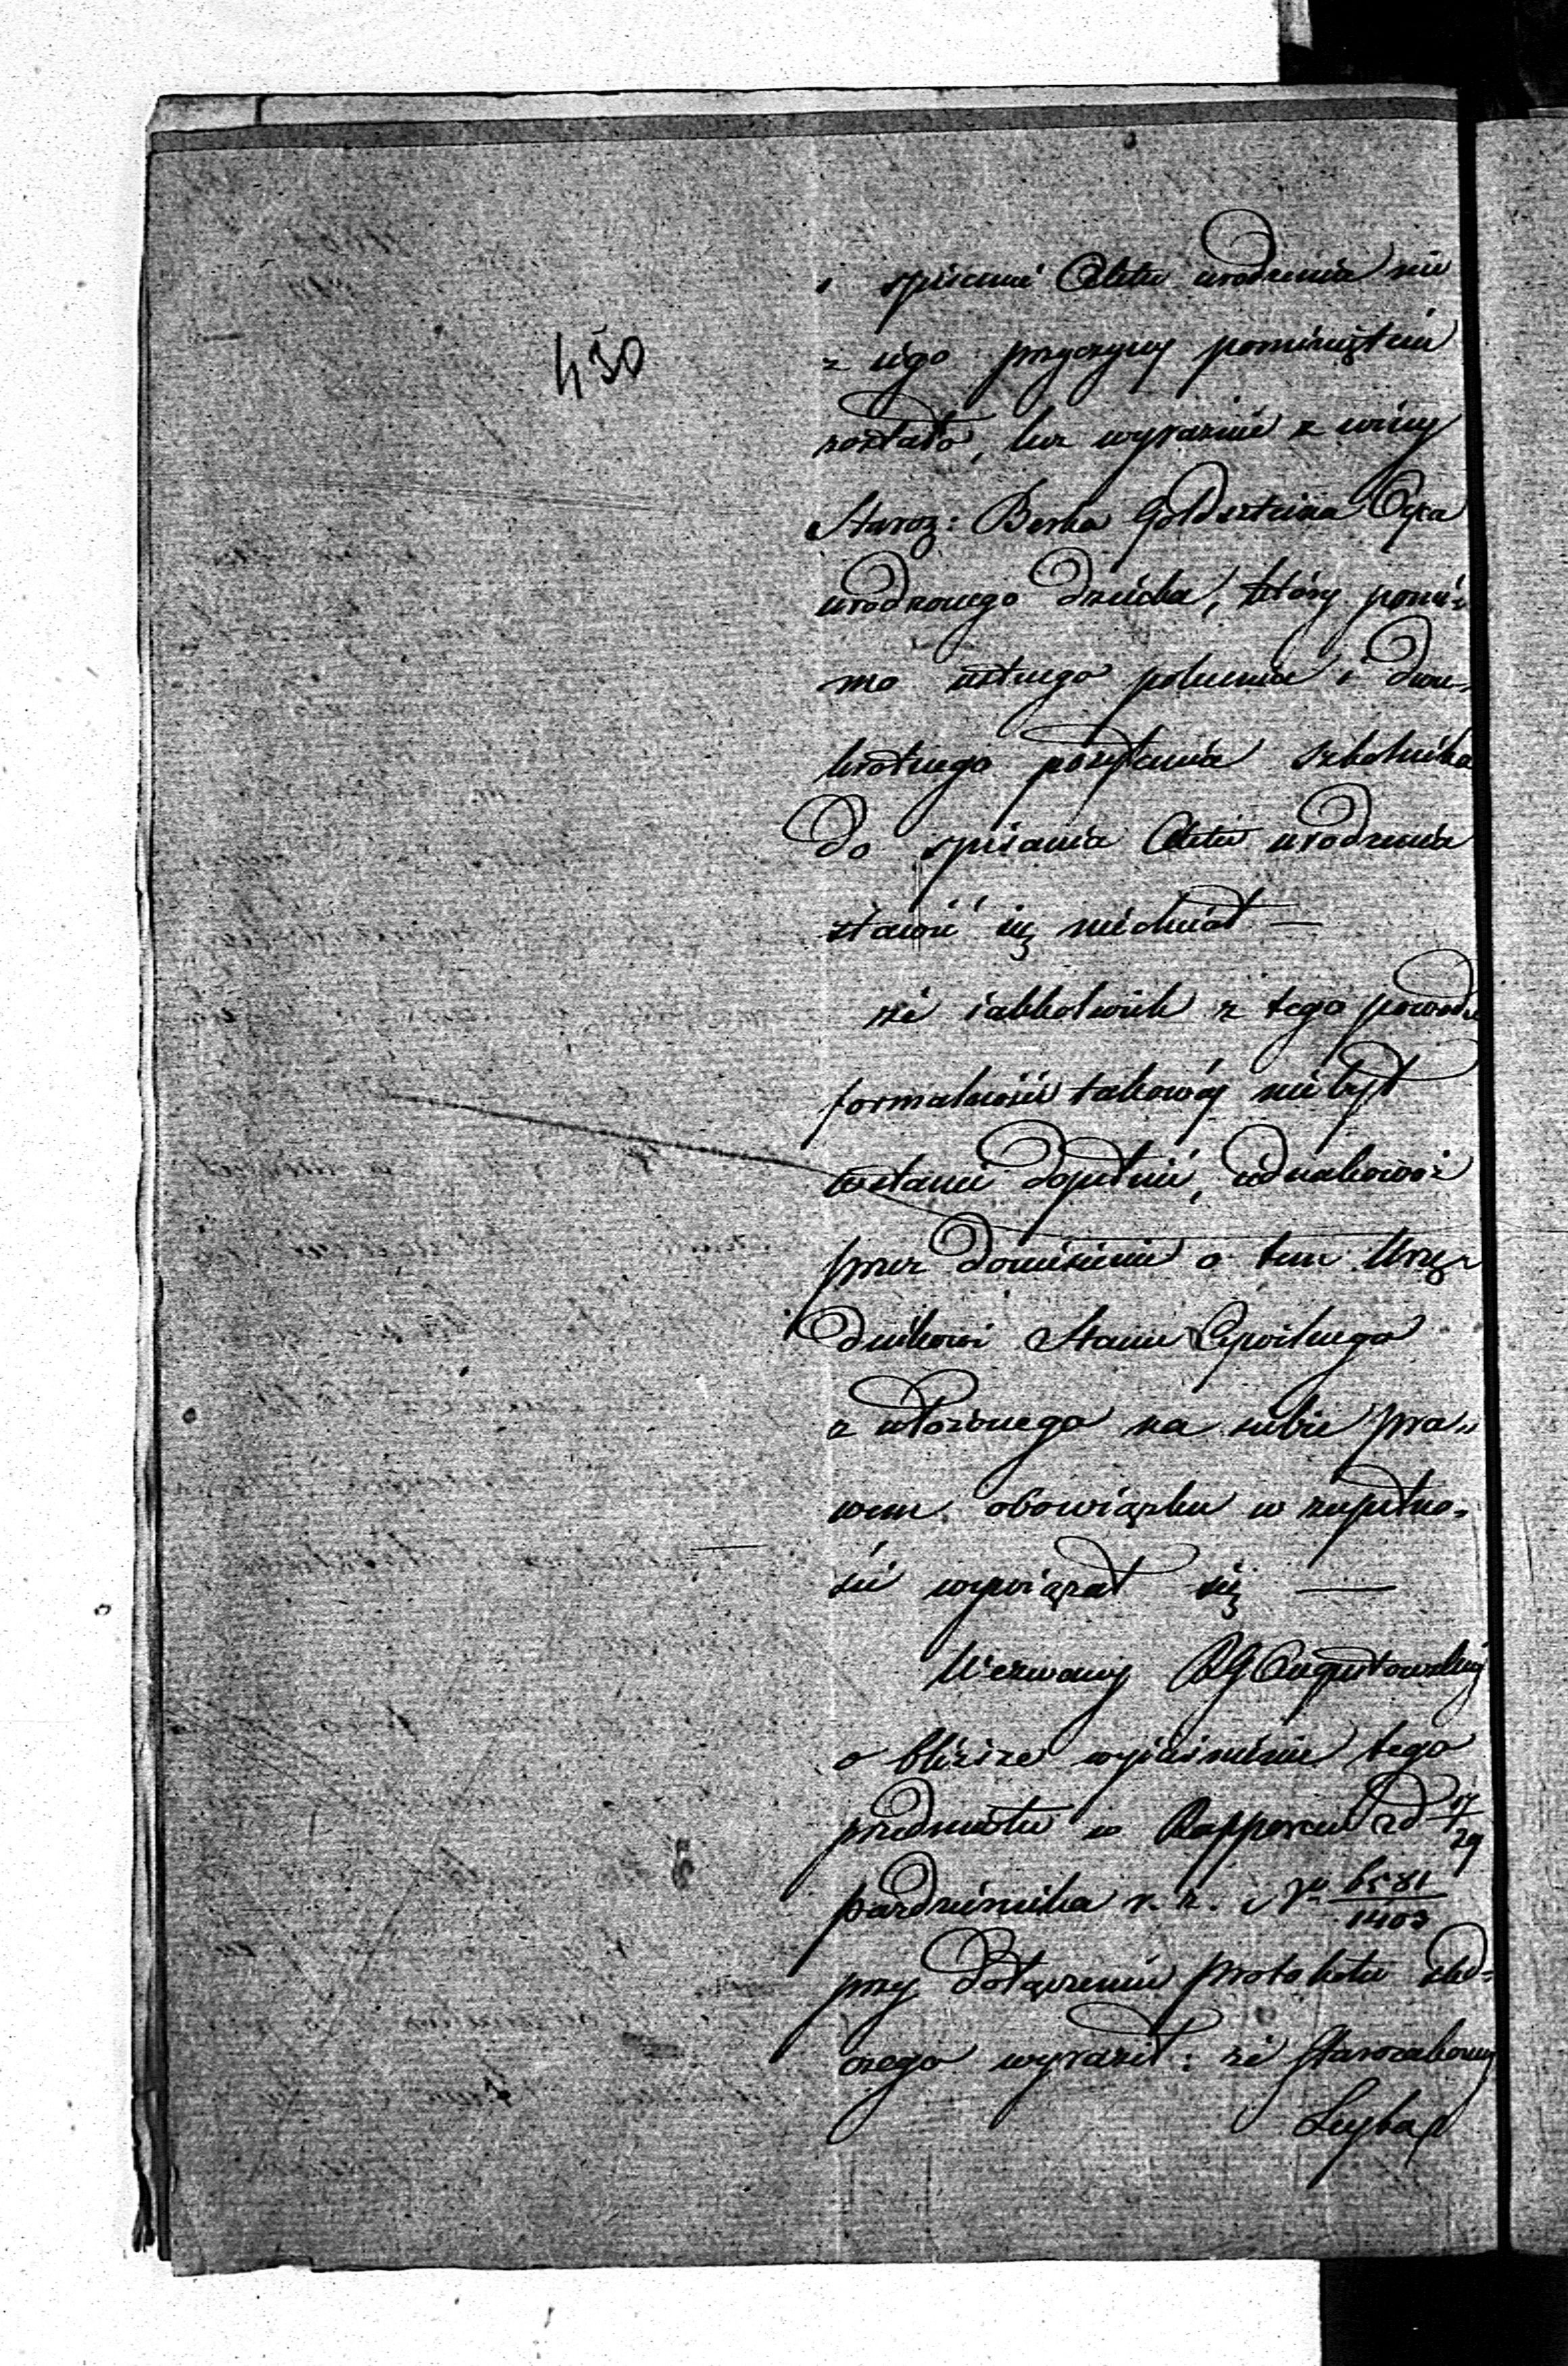 430
i spisanie Aktu urodzenia nie
z iego przyczyny pominiętem
zostało, lecz wyraźnie z winy
Staroz: Berka Goldszteina Oyca
urodzonego dziecka, który pomi-
mo ustnego polecenia i dwu-
krotnego posyłania szkolnika
do spisania Aktu urodzenia
stawić się niechciał —
że iakkolwiek z tego powodu
formalności takowéj nie był
wstanie dopełnić, iednakowoż
przez doniesienie o tem Urzę-
dnikowi Stanu Cywilnego
z włożonego na siebie pra-
wem obowiązku w zupełno-
ści wywiązał się —
Wezwany RG Augustowski
o bliższe wyiaśnienie tego
przedmiotu w Rapporcie z d 17/29
Października r. z. i N 6581/1403
przy dołączeniu protokołu śled-
czego wyraził: że Starozakonny
Leyba